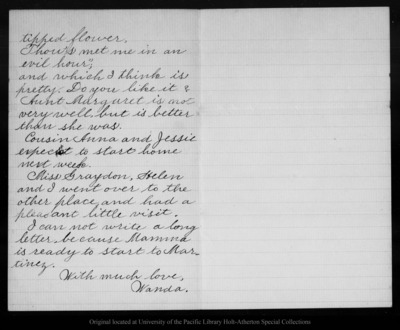 tipped flower,
Thou's met me in an
evil hour",
and which I think is
pretty. Do you like it?
Aunt Margaret is not
very well but is better
than she was.
Cousin Anna and Jessie
expect to start home
next week.
Miss Graydon, Helen
and I went over to the
other place and had a
pleasant little visit.
I can not write a long
letter because Mamma
is ready to start to Mar-
tinez.
With much love,
Wanda.
Original located at University of the Pacific Library Holt-Atherton Special Collections